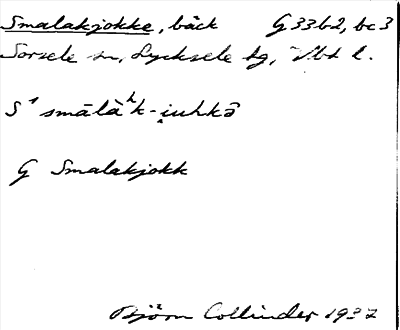 Smalakjokke, bäck G33b2, bc3
Sorsele sn, Lycksele tg, Vbt l.
S¹ smālàʰk-i̯uhkō
G Smalakjokk
Björn Collinder 1937